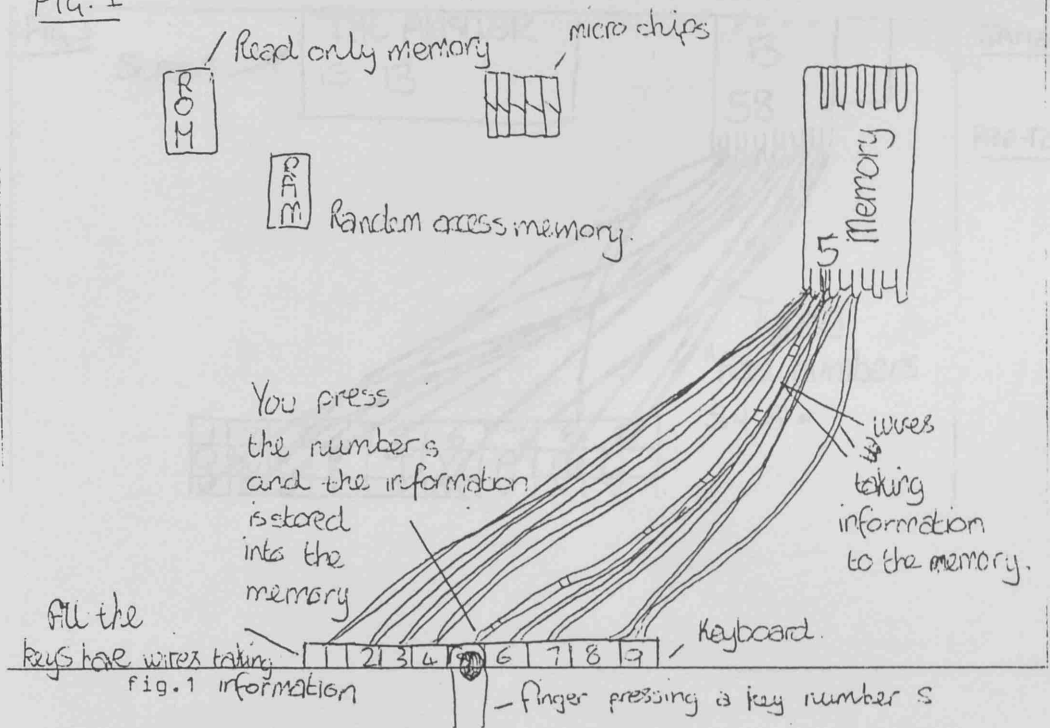 Fig. 1
Read only memory
micro chips
ROM
RAM
Random access memory.
Memory
5
You press
the number s
and the information
is stored
into the
memory
wires
taking
information
to the memory.
All the
keys have wires taking
information
1 2 3 4 5 6 7 8 9
Keyboard.
fig.1
finger pressing a key number s